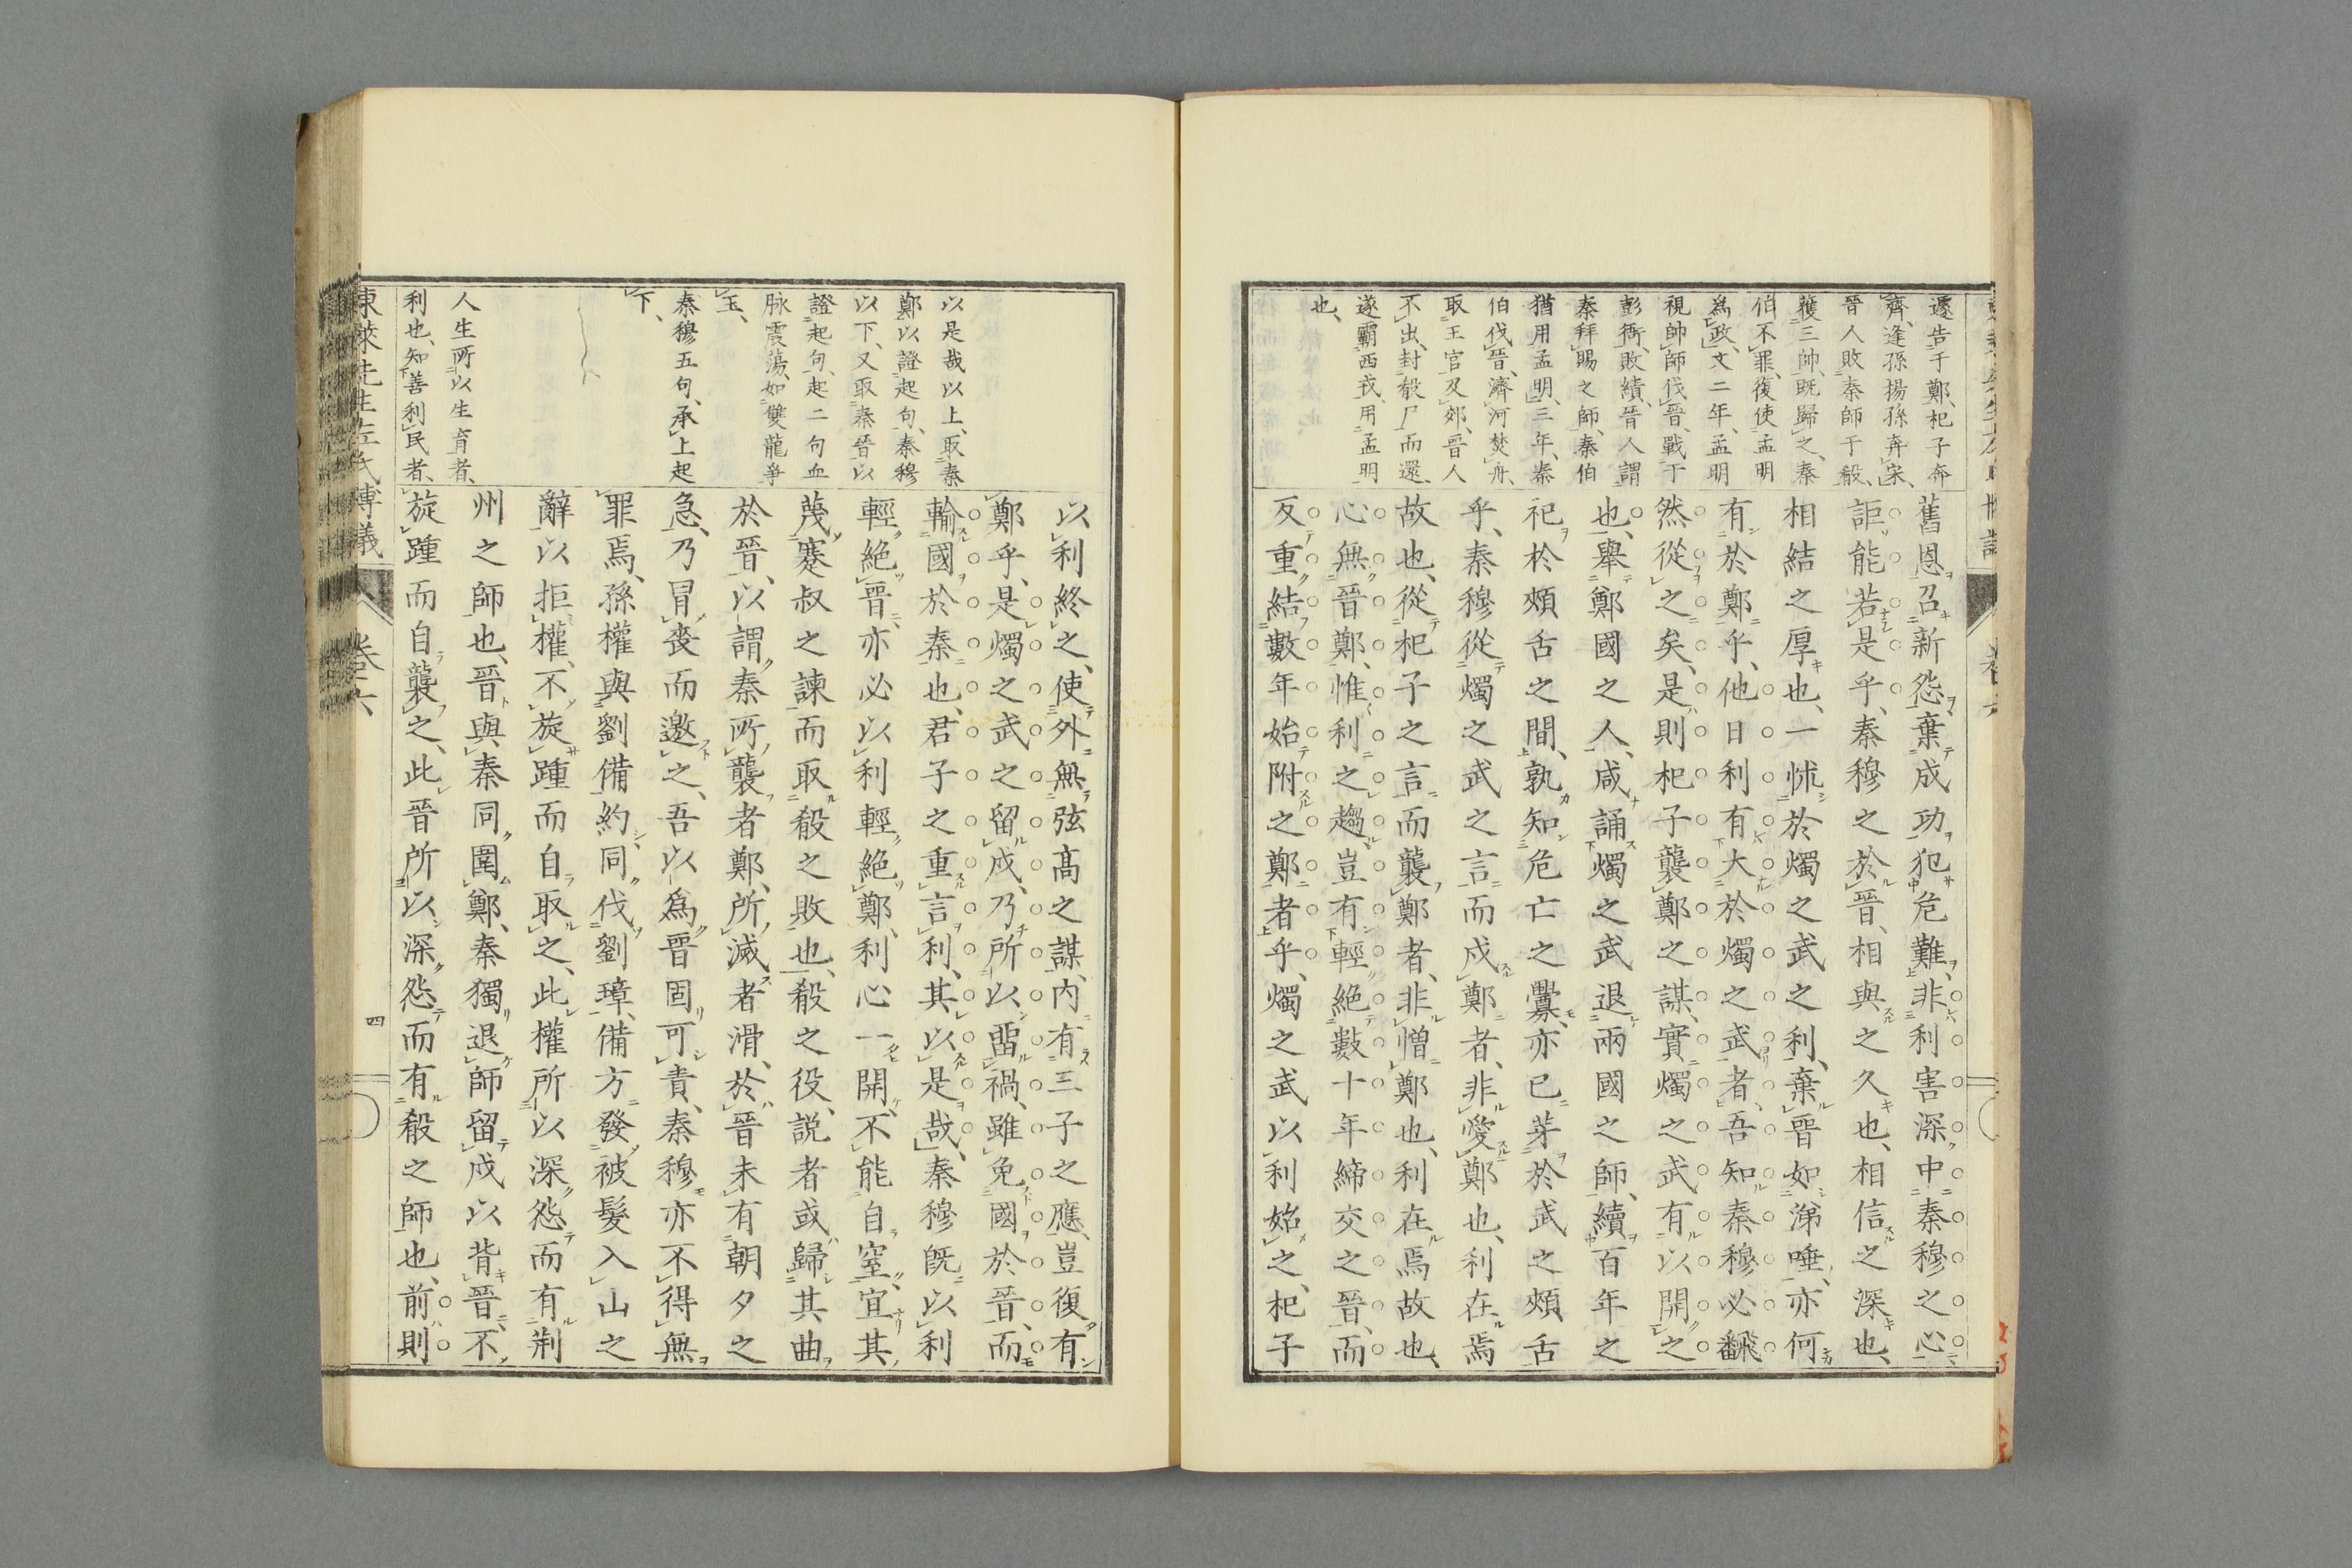 遽告于鄭、杞子奔
齊、逢孫揚孫奔宋、
晉人敗秦師于殽、
獲三帥、既歸之、秦
伯不罪、復使孟明
爲政、文二年、孟明
視帥師伐晉、戰于
彭衙、敗績、晉人謂
秦拜賜之師、秦伯
猶用孟明、三年、秦
伯伐晉、濟河焚舟、
取王官及郊、晉人
不出、封殽尸而還、
遂霸西戎、用孟明
也、
舊恩召新怨棄成功犯危難、非利害深中秦穆之心
詎能若是乎、秦穆之於晉、相與之久也、相信之深也、
相結之厚也、一怵於燭之武之利、棄晉如涕唾、亦何
有於鄭乎、他日利有大於燭之武者、吾知秦穆必飜
然從之矣、是則杞子襲鄭之謀、實燭之武有以開之
也、舉鄭國之人、咸誦燭之武退兩國之師、續百年之
祀於頰舌之間、孰知危亡之釁、亦已芽於武之頰舌
乎、秦穆從燭之武之言而戍鄭者、非愛鄭也、利在焉
故也、從杞子之言而襲鄭者、非憎鄭也、利在焉故也、
心無晉鄭、惟利之趨、豈有輕絕數十年締交之晉、而
反重結數年始附之鄭者乎、燭之武以利始之、杞子
以是哉以上、取秦
鄭以證起句、秦穆
以下、又取秦晉以
證起句、起二句血
脉震蕩、如雙龍爭
玉、
秦穆五句、承上起
下、
人生所以生育者、
利也、知善利民者、
以利終之、使外無弦高之謀、内有三子之應、豈復有
鄭乎、是燭之武之留戍、乃所以畱禍、雖免國於晉、而
輸國於秦也、君子之重言利、其以是哉、秦穆旣以利
輕絕晉、亦必以利輕絕鄭、利心一開、不能自窒、宜其
蔑蹇叔之諫而取殽之敗也、殽之役、説者或歸其曲
於晉、以謂秦所襲者鄭、所滅者滑、於晉未有朝夕之
急、乃冒喪而邀之、吾以爲晉固可責、秦穆亦不得無
罪焉、孫權與劉備約同伐劉璋、備方發被髮入山之
辭以拒權、不旋踵而自取之、此權所以深怨而有荆
州之師也、晉與秦同圍鄭、秦獨退師留戍以背晉、不
旋踵而自襲之、此晉所以深怨而有殽之師也、前則
東萊先生左氏博議
卷六
四